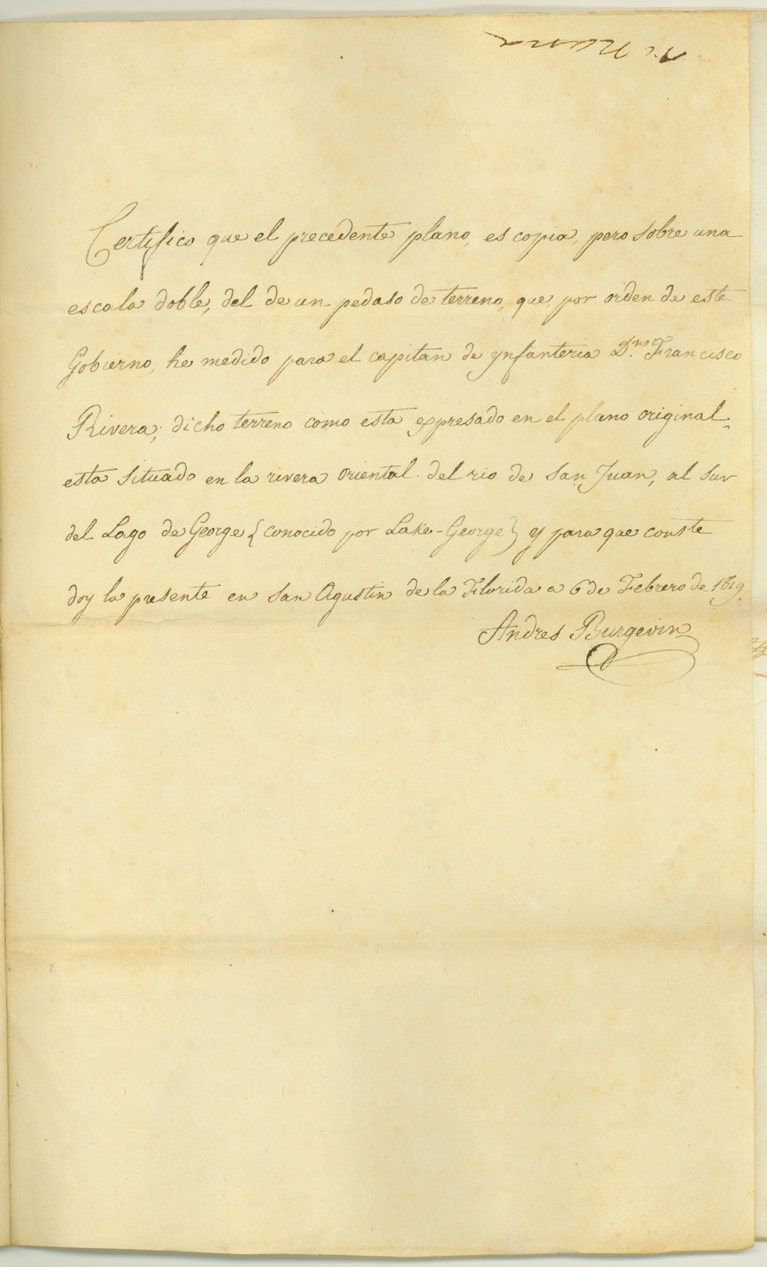 Certifico que el precedente plano, es copia, pero sobre una
escala doble, del de un pedaso de terreno, que por orden de este
Gobierno, he medido para el capitan de ynfanteria D.n Francisco
Rivera; dicho terreno como esta expresado en el plano original
esta situado en la rivera oriental del rio de San Juan, al sur
del Lago de George {conocido por Lake-George} y para que conste
doy la presente en San Agustin de la Florida a 6 de Febrero de 1819.
Andres Burgevin